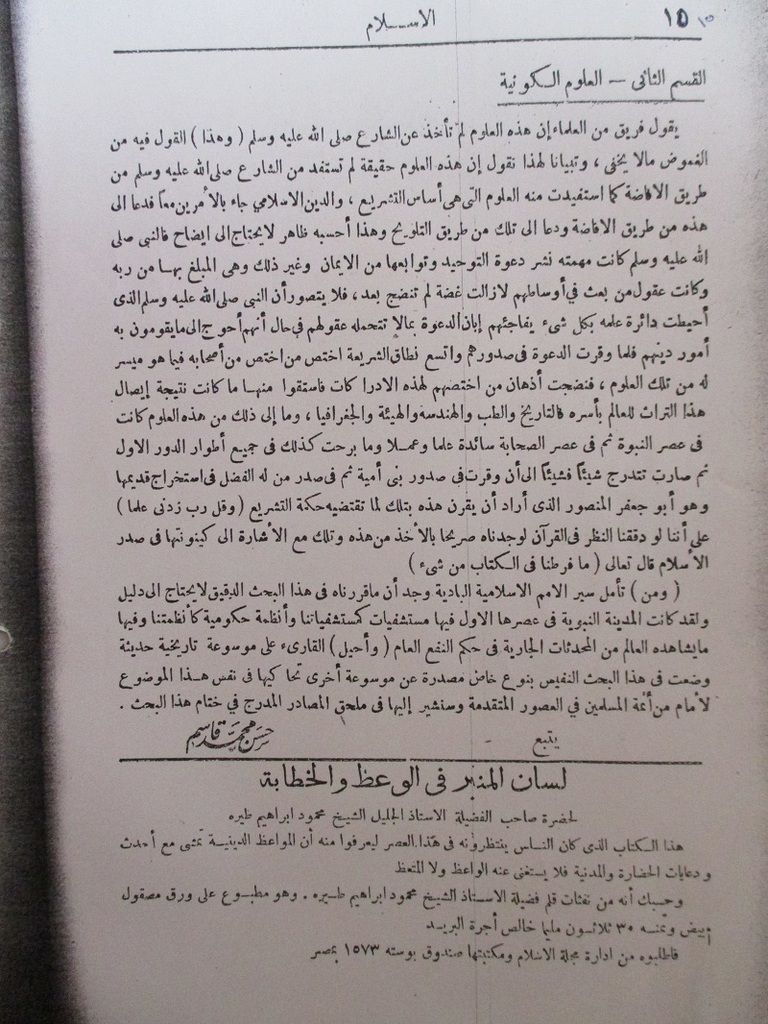 ١٥ الاســلام ١٥
القسم الثانى – العلوم الكونية
يقول فريق من العلماء إن هذه العلوم لم تأخذ عن الشارع صلى الله عليه وسلم ( وهذا ) القول فيه من
الغموض مالا يخفى ، وتبيانا لهذا نقول إن هذه العلوم حقيقة لم تستفد من الشارع صلى الله عليه وسلم من
طريق الافاضة كما استفيدت منه العلوم التى هى أساس التشريع ، والدين الاسلامي جاء بالأمرين معاً فدعا الى
هذه من طريق الافاضة ودعا الى تلك من طريق التلويح وهذا أحسبه ظاهر لايحتاج الى ايضاح فالنبى صلى
الله عليه وسلم كانت مهمته نشر دعوة التوحيد وتوابعها من الايمان وغير ذلك وهى المبلغ بهـا من ربه
وكانت عقول من بعث في أوساطهم لازالت غضة لم تنضج بعد ، فلا يتصور أن النبى صلى الله عليه وسلم الذى
أحيطت دائرة علمه بكل شىء يفاجئهم إبان الدعوة بمالا تتحمله عقولهم في حال أنهم أحوج الى مايقومون به
أمور دينهم فلما وقرت الدعوة فى صدورهم واتسع نطاق الشريعة اختص من اختص من أصحابه فيما هو ميسر
له من تلك العلوم ، فنضجت أذهان من اختصهم لهذه الادراكات فاستقوا منهـا ما كانت نتيجة إيصال
هذا التراث للعالم بأسره فالتاريخ والطب والهندسه والهيئة والجغرافيا ، وما إلى ذلك من هذه العلوم كانت
فى عصر النبوة ثم فى عصر الصحابة سائدة علما وعمـلا وما برحت كذلك فى جميع أطوار الدور الاول
ثم صارت تتدرج شيئاً فشيئاً الى أن وقرت في صدور بنى أمية ثم فى صدر من له الفضل فى استخراج قديمها
وهو أبو جعفر المنصور الذى أراد أن يقرن هذه بتلك لما تقتضيه حكمة التشريع ( وقل رب زدنى علما )
على أننا لو دققنا النظر فى القرآن لوجدناه صريحا بالأخذ من هذه وتلك مع الأشارة الى كينونتها فى صدر
الأسلام قال تعالى ( ما فرطنا فى الكتاب من شىء )
( ومن ) تأمل سير الامم الاسلامية البادية وجد أن ماقررناه فى هذا البحث الدقيق لايحتاج الى دليل
ولقد كانت المدينة النبوية فى عصرها الاول فيها مستشفيات كمستشفياتنا وأنظمة حكومية كأنظمتنا وفيها
مايشاهده العالم من المحدثات الجارية فى حكم النفع العام ( وأحيل ) القارىء على موسوعة تاريخية حديثة
وضعت فى هذا البحث النفيس بنوع خاص مصدرة عن موسوعة أخرى تحاكيها فى نفس هـذا الموضوع
لأمام من أئمة المسلمين في العصور المتقدمة وسنشير إليها فى ملحق المصادر المدرج في ختام هذا البحث .
يتبع – حسن محمد قاسم
لسان المنبر فى الوعظ والخطابة
لحضرة صاحب الفضيلة الاستاذ الجليل الشيخ محمود ابراهيم طيره
هذا الكتاب الذى كان النـاس ينتظرونه فى هذا العصر ليعرفوا منه أن المواعظ الدينيـة تمشى مع أحدث
ودعايات الحضارة والمدنية فلا يستغنى عنه الواعظ ولا المتعظ
وحسبك أنه من نفثات قلم فضيلة الاستاذ الشيخ محمود ابراهيم طيره . وهو مطبوع على ورق مصقول
أبيض وثمنـه ٣٠ ثلاثـون مليما خالص أجرة البريـد
فاطلبوه من ادارة مجلة الاسلام ومكتبتها صندوق بوسته ١٥٧٣ بمصر